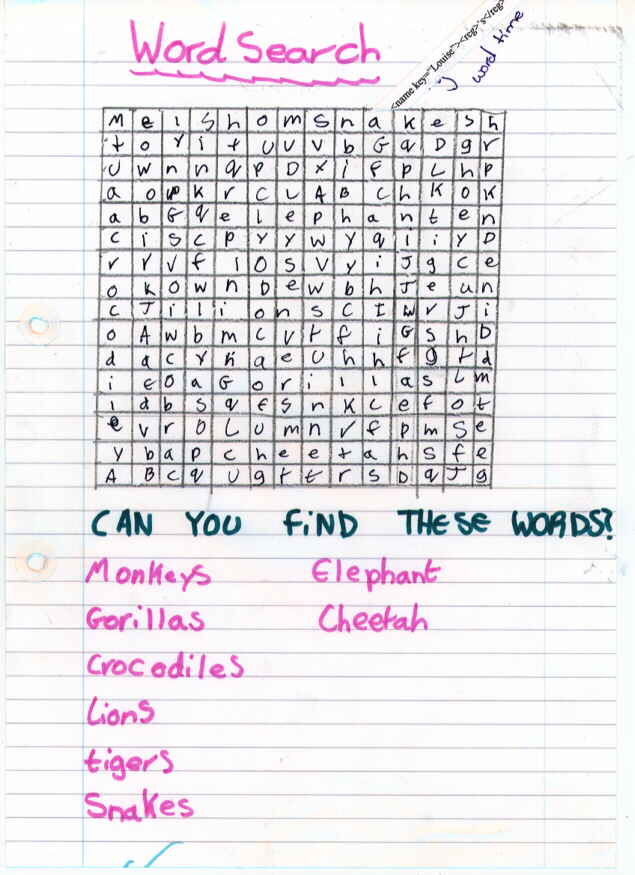 Word Search
<name key="Louise"><reg>'s</reg>
word time
M e l s h o m s n a k e s h
t o Y i t U U V b G a D g r
U w n n q P D x i f P L h P
a o p k r C L A B C h K O K
a b G q e l e p h a n t e n
C i s c p Y Y w y q i i y D
r r v f i O s v y i J g c e
o k o w n D e w b h J e u n
c J i l i o n s C I w r J i
o A w b m c v t f i G s h D
d a c y k a e U h h f g t d
i E O a G o r i l l a s L m
l d b s q E s n K L e f o t
e v r o L U m n r f p m s e
y b a p c h e e t a h s f e
A B c q U g t t r s D q J g
CAN YOU FiND THESE WORDS?
Monkeys Elephant
Gorillas Cheetah
Crocodiles
Lions
tigers
Snakes